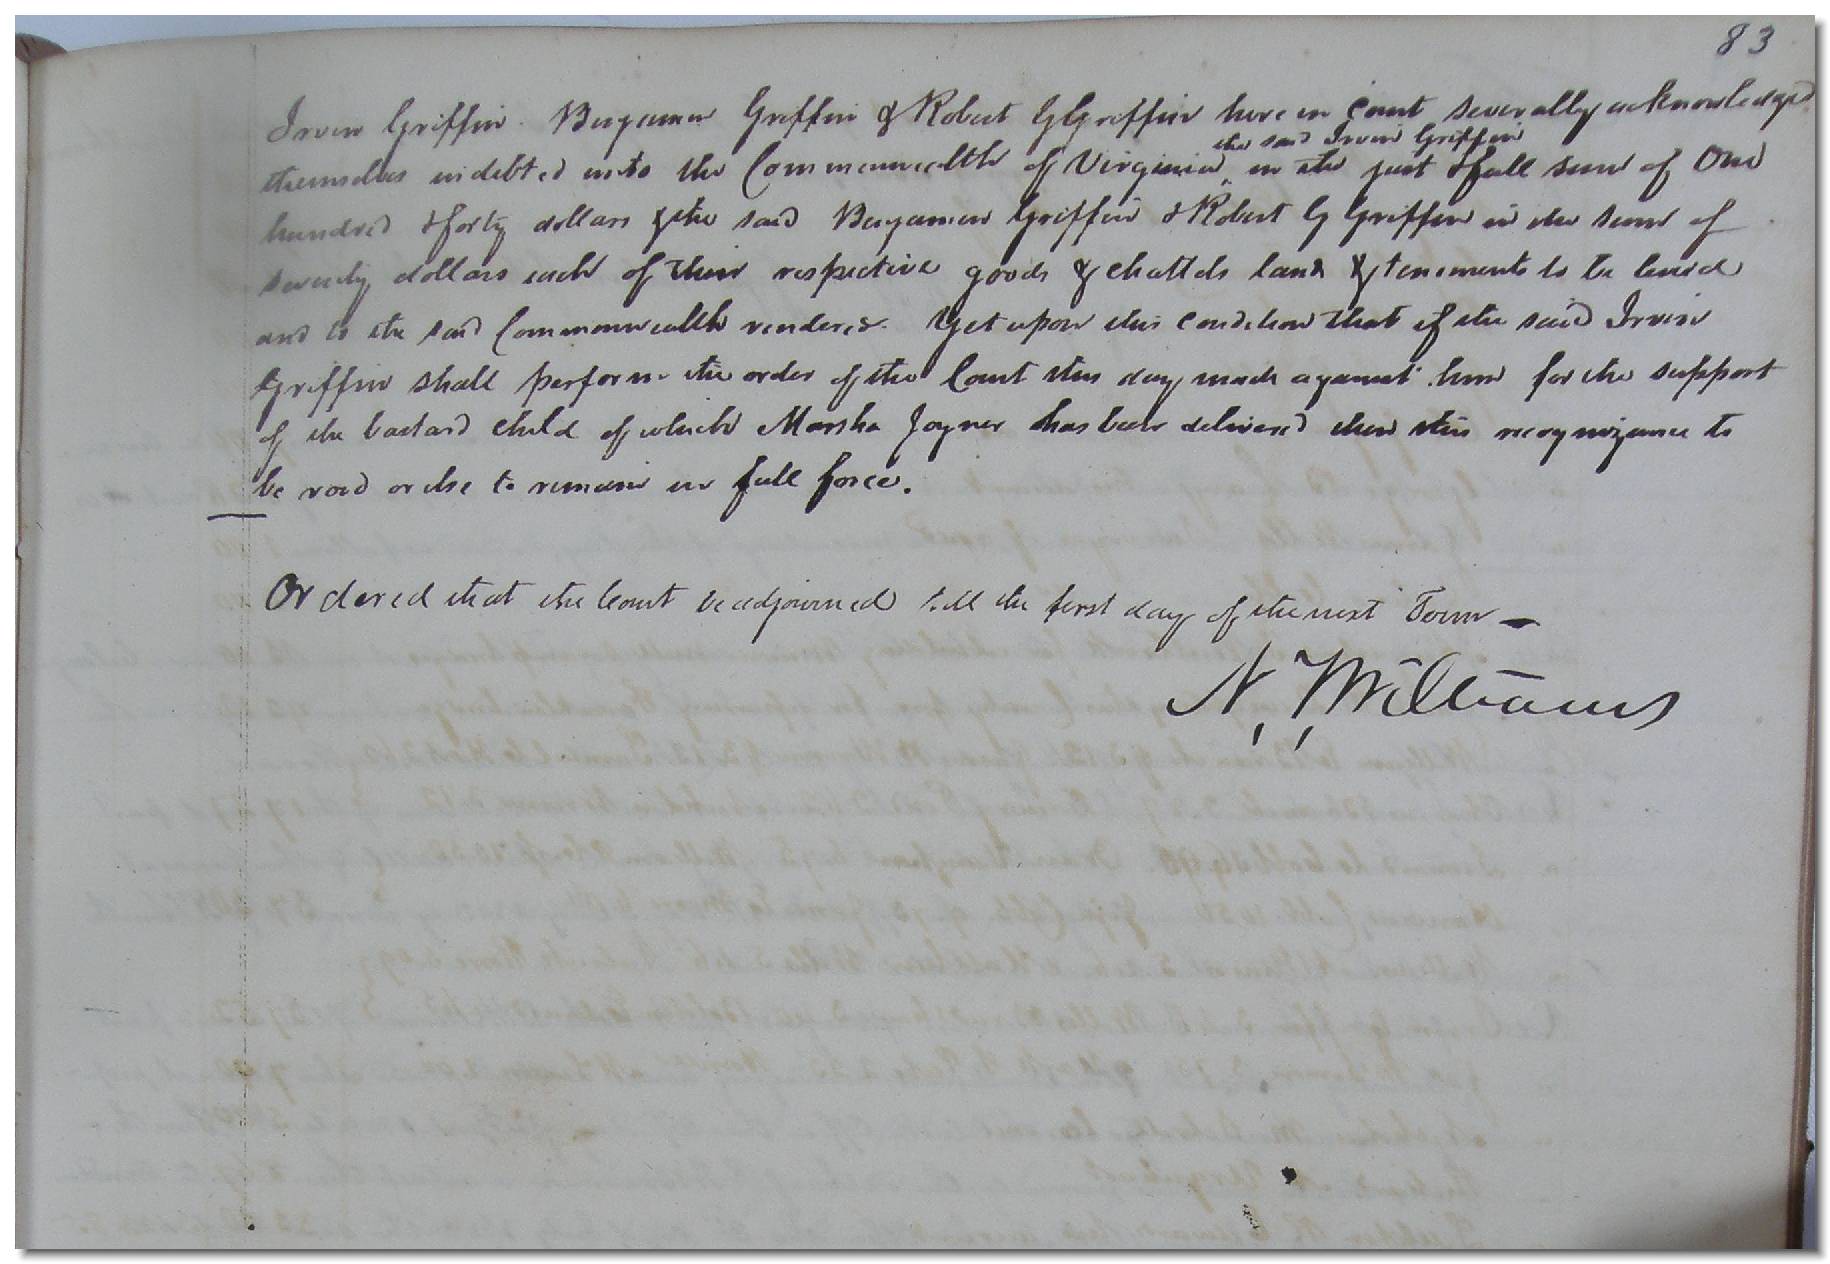 83
Irvin Griffin. Benjamin Griffin & Robert G Griffin here in Court severally acknowledged
the said Irvin Griffin
themselves indebted unto the Commonwealth of Virginia in the just & full sum of One
hundred & forty dollars & the said Benjamin Griffin & Robert G Griffin in the sum of
seventy dollars each of their respective goods & chattels land & tenements to be levied
and to the said Commonwealth rendered. Yet upon this condition that if the said Irvin
Griffin shall perform the order of the Court this day made against him for the support
of the bastard child of which Marsha Joyner has been delivered then this recognizance to
be void or else to remain in full force.
Ordered that the Court be adjourned till the first day of the next Term
N. Williams